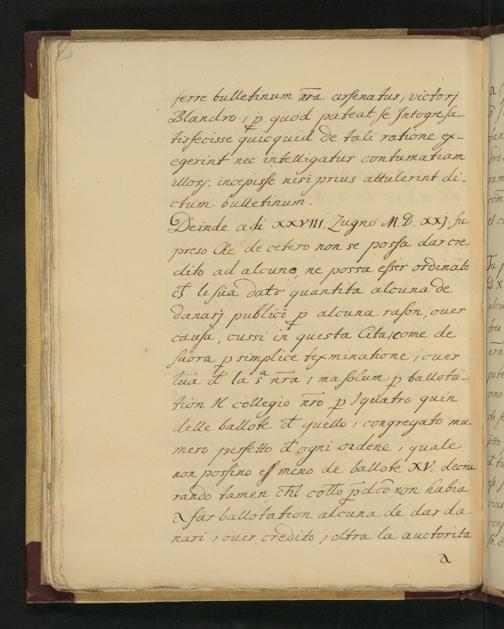 ferre bulletinum n̄ra arsenatus, victorj
Blandro, p̱ quod pateat se Intogresa-
tisfecisse quicquid de tali ratione ex-
egerint nec intelligatur contumatiam
illorꝫ. incepisse nisi prius attulerint di-
ctum bulletinum.
Deinde adi XXVIII. Zugno M.D.XXJ. fu
preso che de cetero non se possa dar cre
dito ad alcuno, ne possa esser ordinato
le sia dato quantita alcuna de
danarj publici p̱ alcuna rason, over
causa, cussi in questa Cita, come de
fuora p̱ simplice terminatione, over
la sᵃ n̄ra, ma solum p̱ ballota-
tion Il collegio n̄ro p̱ I quatro quin
delle ballote đ quello, congregato nu
mero perfetto đ ogni ordene, quale
non possino ess̄ meno de ballote XV. decha
rando tamen, ch̄l colľo p̱dc̄o non habia
a far ballotation alcuna de dar da
nari, over credito, oltra la auctorita
a